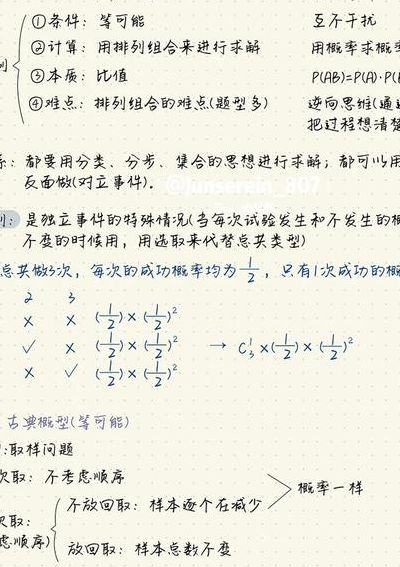 ①条件: 等可能 互不干扰
②计算: 用排列组合来进行求解 用概率求概率
③本质: 比值 P(AB)=P(A)·P(B
④难点: 排列组合的难点(题型多) 逆向思维(通过
把过程想清楚
系: 都要用分类、分步、集合的思想进行求解; 都可以用
反面做(对立事件).
@Junserein_807
列: 是独立事件的特殊情况(当每次试验发生和不发生的概
不变的时候用, 用选取来代替总共类型)
总共做3次, 每次的成功概率均为1/2, 只有1次成功的概
2 3
× × (1/2)×(1/2)²
✓ × (1/2)×(1/2)² → C₃¹×(1/2)×(1/2)²
× ✓ (1/2)×(1/2)²
古典概型(等可能)
:取样问题
次取: 不考虑顺序
不放回取: 样本逐个在减少 概率一样
次取:
虑顺序)
放回取: 样本总数不变